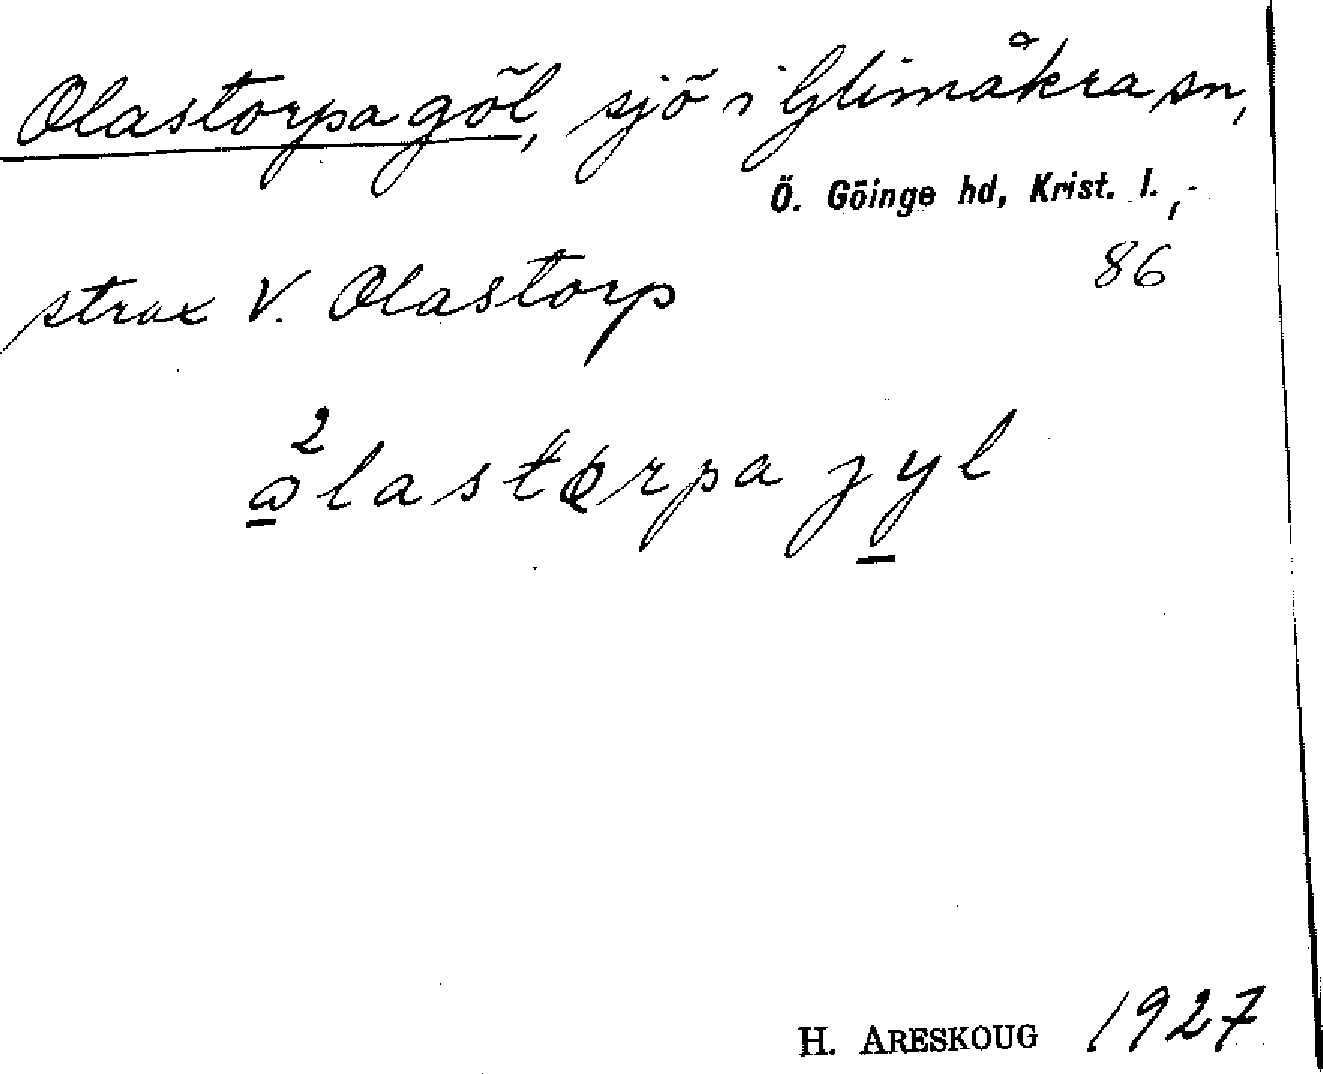 Olastorpagöl, sjö i Glimåkra sn,
Ö. Göinge hd, Krist. l.,
86
strax V. Olastorp
H. ARESKOUG 1927